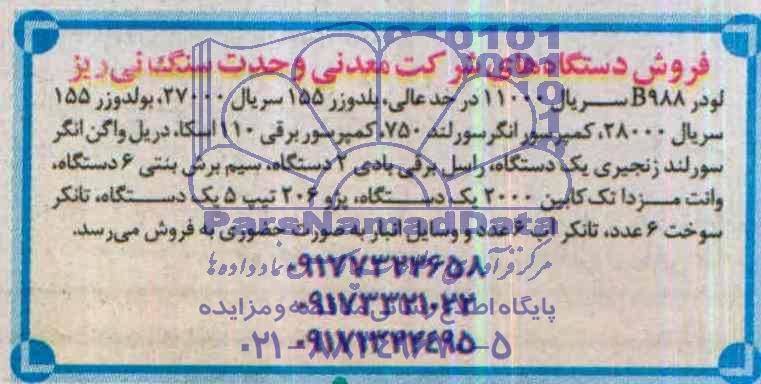 فروش دستگاه های شرکت معدنی وحدت سنگ نی ریز
لودر B۹۸۸ سریال ۱۱۰۰۰ در حد عالی، بلدوزر ۱۵۵ سریال ۲۷۰۰۰، بولدوزر ۱۵۵
سریال ۲۸۰۰۰، کمپرسور انگرسورلند ۷۵۰، کمپرسور برقی ۱۱۰ اسکا، دریل واگن انگر
سورلند زنجیری یک دستگاه، راسل برقی بادی ۲ دستگاه، سیم برش بنتی ۶ دستگاه،
وانت مزدا تک کابین ۲۰۰۰ یک دستگاه، پژو ۲۰۶ تیپ ۵ یک دستگاه، تانکر
سوخت ۶ عدد، تانکر آب ۶ عدد و وسایل انبار به صورت حضوری به فروش می رسد.
ParsNamadData
پایگاه اطلاع رسانی مناقصه و مزایده